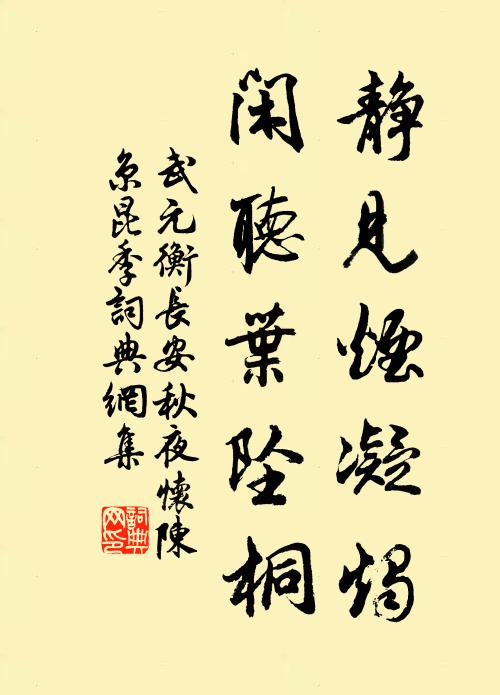 靜見煙凝燭
閑聽葉墜桐
武元衡長安秋夜懷陳
京昆季詞典網集
詞典
网印